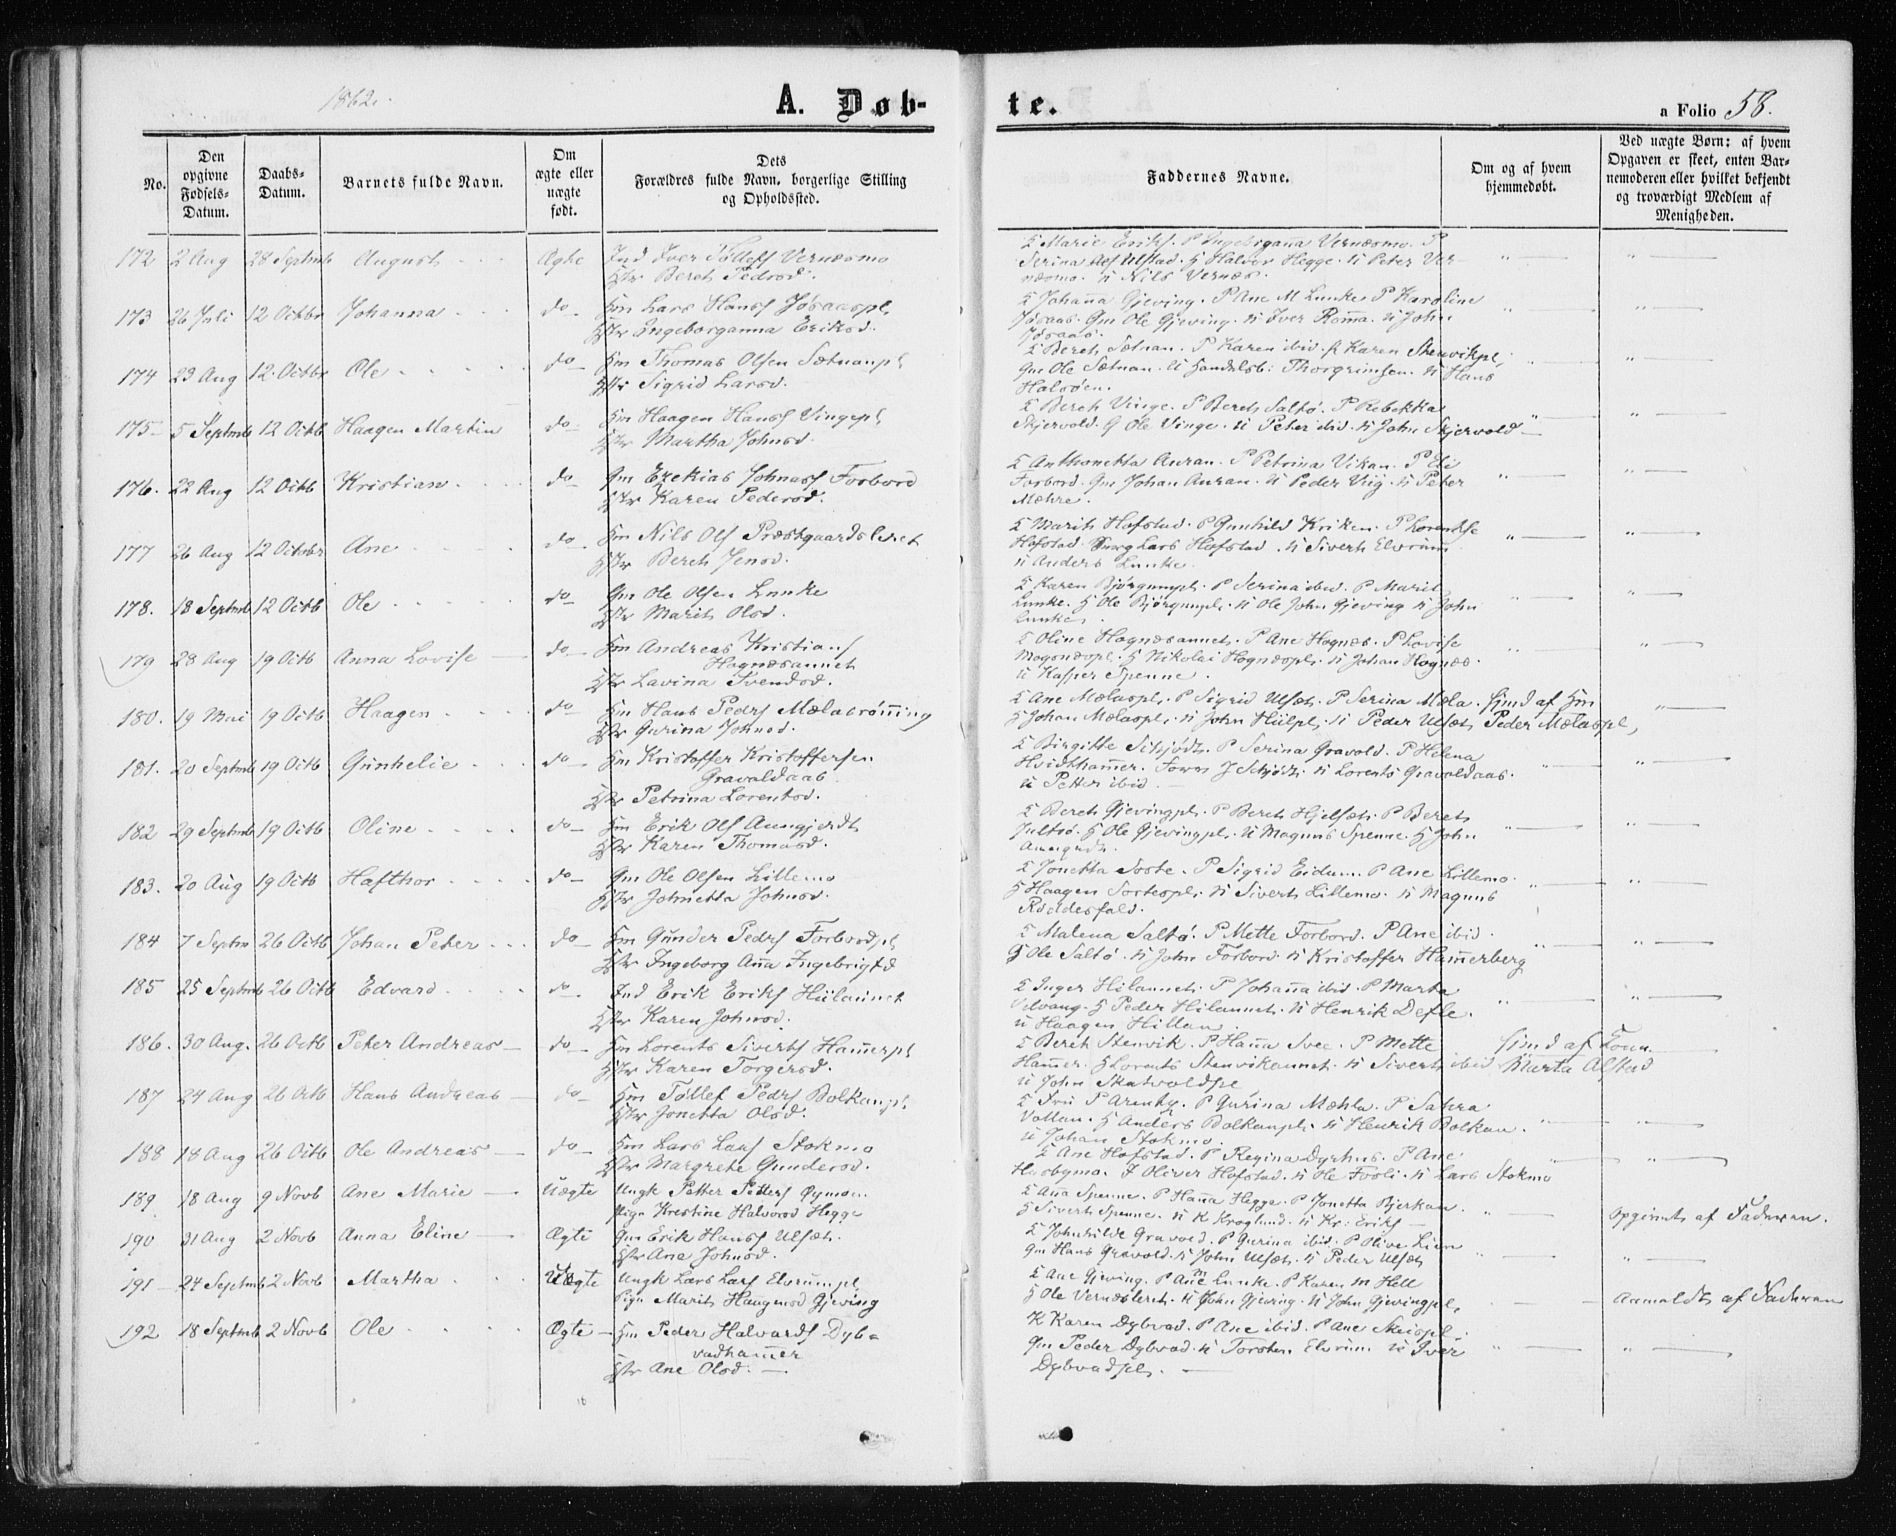 1862.
A. Døb-
te.
a Folio 58.
No.
Den opgivne Fødsels-Datum.
Daabs-Datum.
Barnets fulde Navn.
Om ægte eller uægte født.
Dets Forældres fulde Navn, borgerlige Stilling og Opholdssted.
Faddernes Navne.
Om og af hvem hjemmedøbt.
Ved uægte Børn: af hvem Opgaven er skeet, enten Barnemoderen eller hvilket bekjendt og troværdigt Medlem af Menigheden.
172 2 Aug 28 Septmb August Ægte Ind Iver Tollefs Vernæsmo
Hstr Bereth Pedersd.
K Marie Eriks. P Ingebriganna Vernæsmo. P
Serina Alstad. G Halvor Hegge. U Peter Ver-
næsmo. U Nils Vernæs.
173 26 Juli 12 Octbr Johanna do Hm Lars Hans Jøsaaspl
Hstr Ingeborganna Eriksd.
K Johanna Gjeving. P Ane M Lunke P Karoline
Jøsaas. Gm Ole Gjeving. U Iver Romma. U John
Jøsaas.
174 23 Aug 12 Octbr Ole do Hm Thomas Olsen Sætnanpl
Hstr Sigrid Larsd.
K Bereth Sætnan. P Karen ibid. P Karen Stenvikpl.
Gm Ole Sætnan. U Handelsb: Thorgrimsen. U Hans
Halsøen.
175 5 Septmb 12 Octb Haagen Martin do Hm Haagen Hans Vingepl
Hstr Martha Johnsd.
K Bereth Vinge. P Bereth Saltø. P Rebekka
Skjervold. G Ole Vinge. U Peter ibid. U John Skjervold
176. 22 Aug 12 Octb Kristian do Gm Ezekias Johnass Forbord
Hstr Karen Pedersd.
K Anthonetta Auran. P Petrina Vikan. P Eli
Forbord. Gm Johan Auran. U Peder Viig. U Peter
Mæhre.
177 26 Aug 12 Octbr Ane do Hm Nils Ols Præstgaardsleret
Hstr Bereth Jensd.
K Marith Hofstad. P Gunhild Kriken. P Lorentse
Hofstad. Lars Hofstad. U Siverth Elvrum
U Anders Lunke.
178. 18 Septmb 12 Octb Ole do Gm Ole Olsen Lunke
Hstr Marith Olsd.
K Karen Bjørgumpl. P Serina ibid. P Marit
Lunke. G Ole Bjørgumpl. U Ole John Gjeving U John
Lunke.
179 28 Aug 19 Octb Anna Lovise do Hm Andreas Kristians
Hognæsaunet
Hstr Lavina Svendsd.
K Oline Hognæsaunet. P Ane Hognæs. P Lovise
Mogsnæspl. G Nikolai Hognæspl. U Johan Hognæs.
U Kasper Spenne.
180. 19 Mai 19 Octb Haagen do Hm Hans Peders Mælabrønning
Hstr Gurina Johnsd.
K Ane Mælaspl. P Sigrid Ulseth. P Serina Mæla.
G Johan Mælaspl. U John Hulpl. U Peder Ulseth
Hjmd af Hm
Peder Mælaspl,
181. 20 Septmb 19 Octb Gunhelie do Hm Kristoffer Kristoffersen
Gravaldaas
Hstr Petrina Lorentsd.
K Birgitte Schjødt. P Serina Gravold. P Helena
Hvidthammer. Forv: J Schjødt. U Lorents Gravoldaas.
U Petter ibid.
182 29 Septmb 19 Octb Oline do Hm Erik Ols Aungjerdt
Hstr Karen Thomasd.
K Bereth Gjevingpl. P Bereth Hjelseth. P Bereth
Jultsø. G Ole Gjevingpl. U Magnus Spenne. G John
183. 20 Aug 19 Octb Hafthor do Gm Ole Olsen Lillemo
Hstr Johnetta Johnsd.
K Jonetta Sorte. P Sigrid Eidum. P Ane Lillemo.
G Haagen Sortespl. U Siverth Lillemo. U Magnus
Røddesfald.
184 7 Septm 26 Octb Johan Peter do Hm Gunder Peders Forbordpl
Hstr Ingeborg Anna Ingebrigtd
K Malena Saltø. P Mette Forbord. P Ane ibid.
G Ole Saltø. U John Forbord. U Kristoffer Hammerberg
185 25 Septmb 26 Octb Edvard do Ind Erik Eriks Hulaunet
Hstr Karen Johnsd.
K Inger Hilaunet. P Johanna ibid. P Marta
Velvang. G Peder Hilaunet. U Henrik Defle.
U Haagen Hillan
186. 30 Aug. 26 Octb Peter Andreas do Hm Lorents Siverts Hammerpl
Hstr Karen Torgersd.
K Bereth Stenvik. P Hanna Svee. P Mette
Hammer. G Lorents Stenvikaunet. U Siverth ibid
U John Skatvoldpl
Hjmd af
Marta Alstad
187 24 Aug 26 Octb Hans Andreas do Hm Tollef Peders Bolkanpl.
Hstr Jonetta Olsd.
K Fru P Arentz. P Gurina Mæhla. P Sahra
Vollan. G Anders Bolkanpl. U Henrik Bolkan.
U Johan Stokmo.
188 18 Aug 26 Octb Ole Andreas do Hm Lars Lars Stokmo
Hstr Margrethe Gundersd.
K Ane Hofstad. P Regina Dyrhus. P Ane
Husbymo. G Oliver Hofstad. U Ole Fosli. U Lars Stokmo
189. 18 Aug 9 Novb Ane Marie Uægte Ungk Petter Petters Øymoen.
Pige Kirstine Halvorsd Hegge
K Ana Spenne. P Hanna Hegge. P Jonetta Bjerkan.
G Siverth Spenne. U K Kroglund. U Kr: Eriks
Opgivet af Faderen.
190 31 Aug 2 Novb Anna Eline Ægte Gm Erik Hans Ulseth.
Hstr Ane Johnsd.
K Johnhilde Gravold. P Gurina ibid. P Olive Lien
Gm Hans Gravold. U John Ulseth. U Peder Ulseth
191 24 Septmb 2 Novb Martha Uægte Ungk Lars Lars Elvrumpl
Pige Marith Haagensd Gjeving
K Ane Gjeving. P Ane M Lunke. P Karen M Hell
G Ole Vernæsleret. U John Gjeving. U John Gjevingpl.
Anmeldt af Faderen
192 18 Septmb 2 Novb Ole Ægte Hm Peder Halvards Dyb-
vadhammer
Hstr Ane Olsd.
K Karen Dybvad. P Ane ibid. P Ane Skeispl.
Gm Peder Dybvad. U Torsten Elvrum U Iver
Dybvadpl.